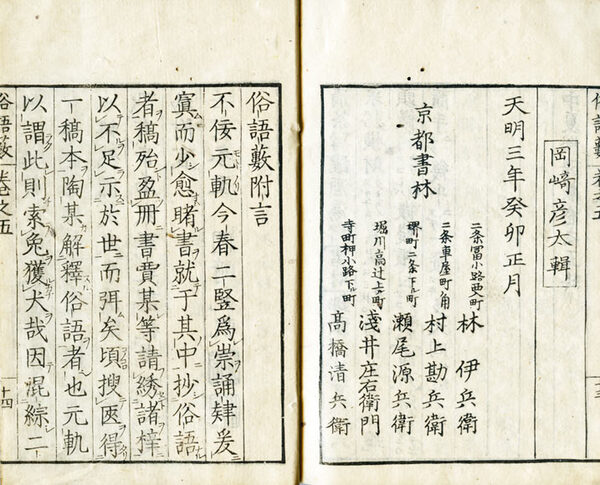 岡﨑彦太輯
天明三年癸卯正月
京都書林
二条冨小路西入町 林 伊兵衛
二条車屋町角 村上勘兵衛
堺町二条下ル町 瀬尾源兵衛
堀川高辻上ル町 淺井庄右衛門
寺町押小路下ル町 髙橋清兵衛
俗語藪附言
不佞元軌今春二豎爲祟誦肄爰
寘而少愈睹書就于其中抄俗語
者稿殆盈冊書賈某等請綉諸梓
以不足示於世而弭矣頃搜匧得
一稿本陶某解釋俗語者也元軌
以謂此則索兔獲犬哉因混綜二
俗語藪 卷之五 十四